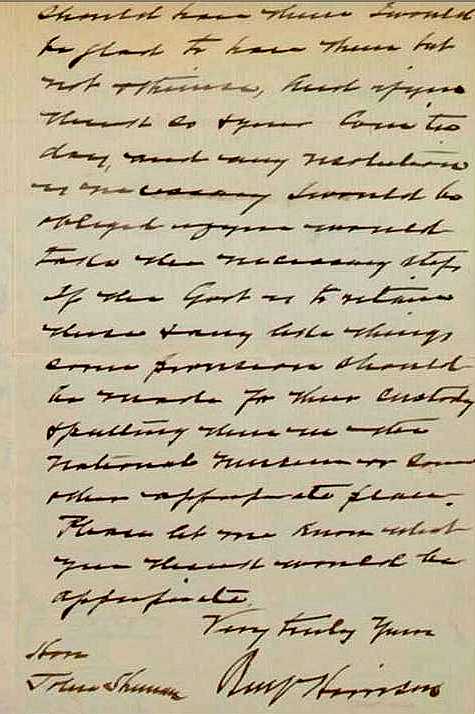 should have them I would
be glad to have them but
not otherwise, And if you
think so & your Com tee
day, and any resolution
is necessary I would be
obliged if you would
take the necessary steps
If the Govt is to retain
these & any like things
some provision should
be made for their custody
& putting them in the
National Museum or some
other appropriate place.
Please let me know what
you think would be
appropriate
Very truly Yours
Benj Harrison
Hon
John Sherman